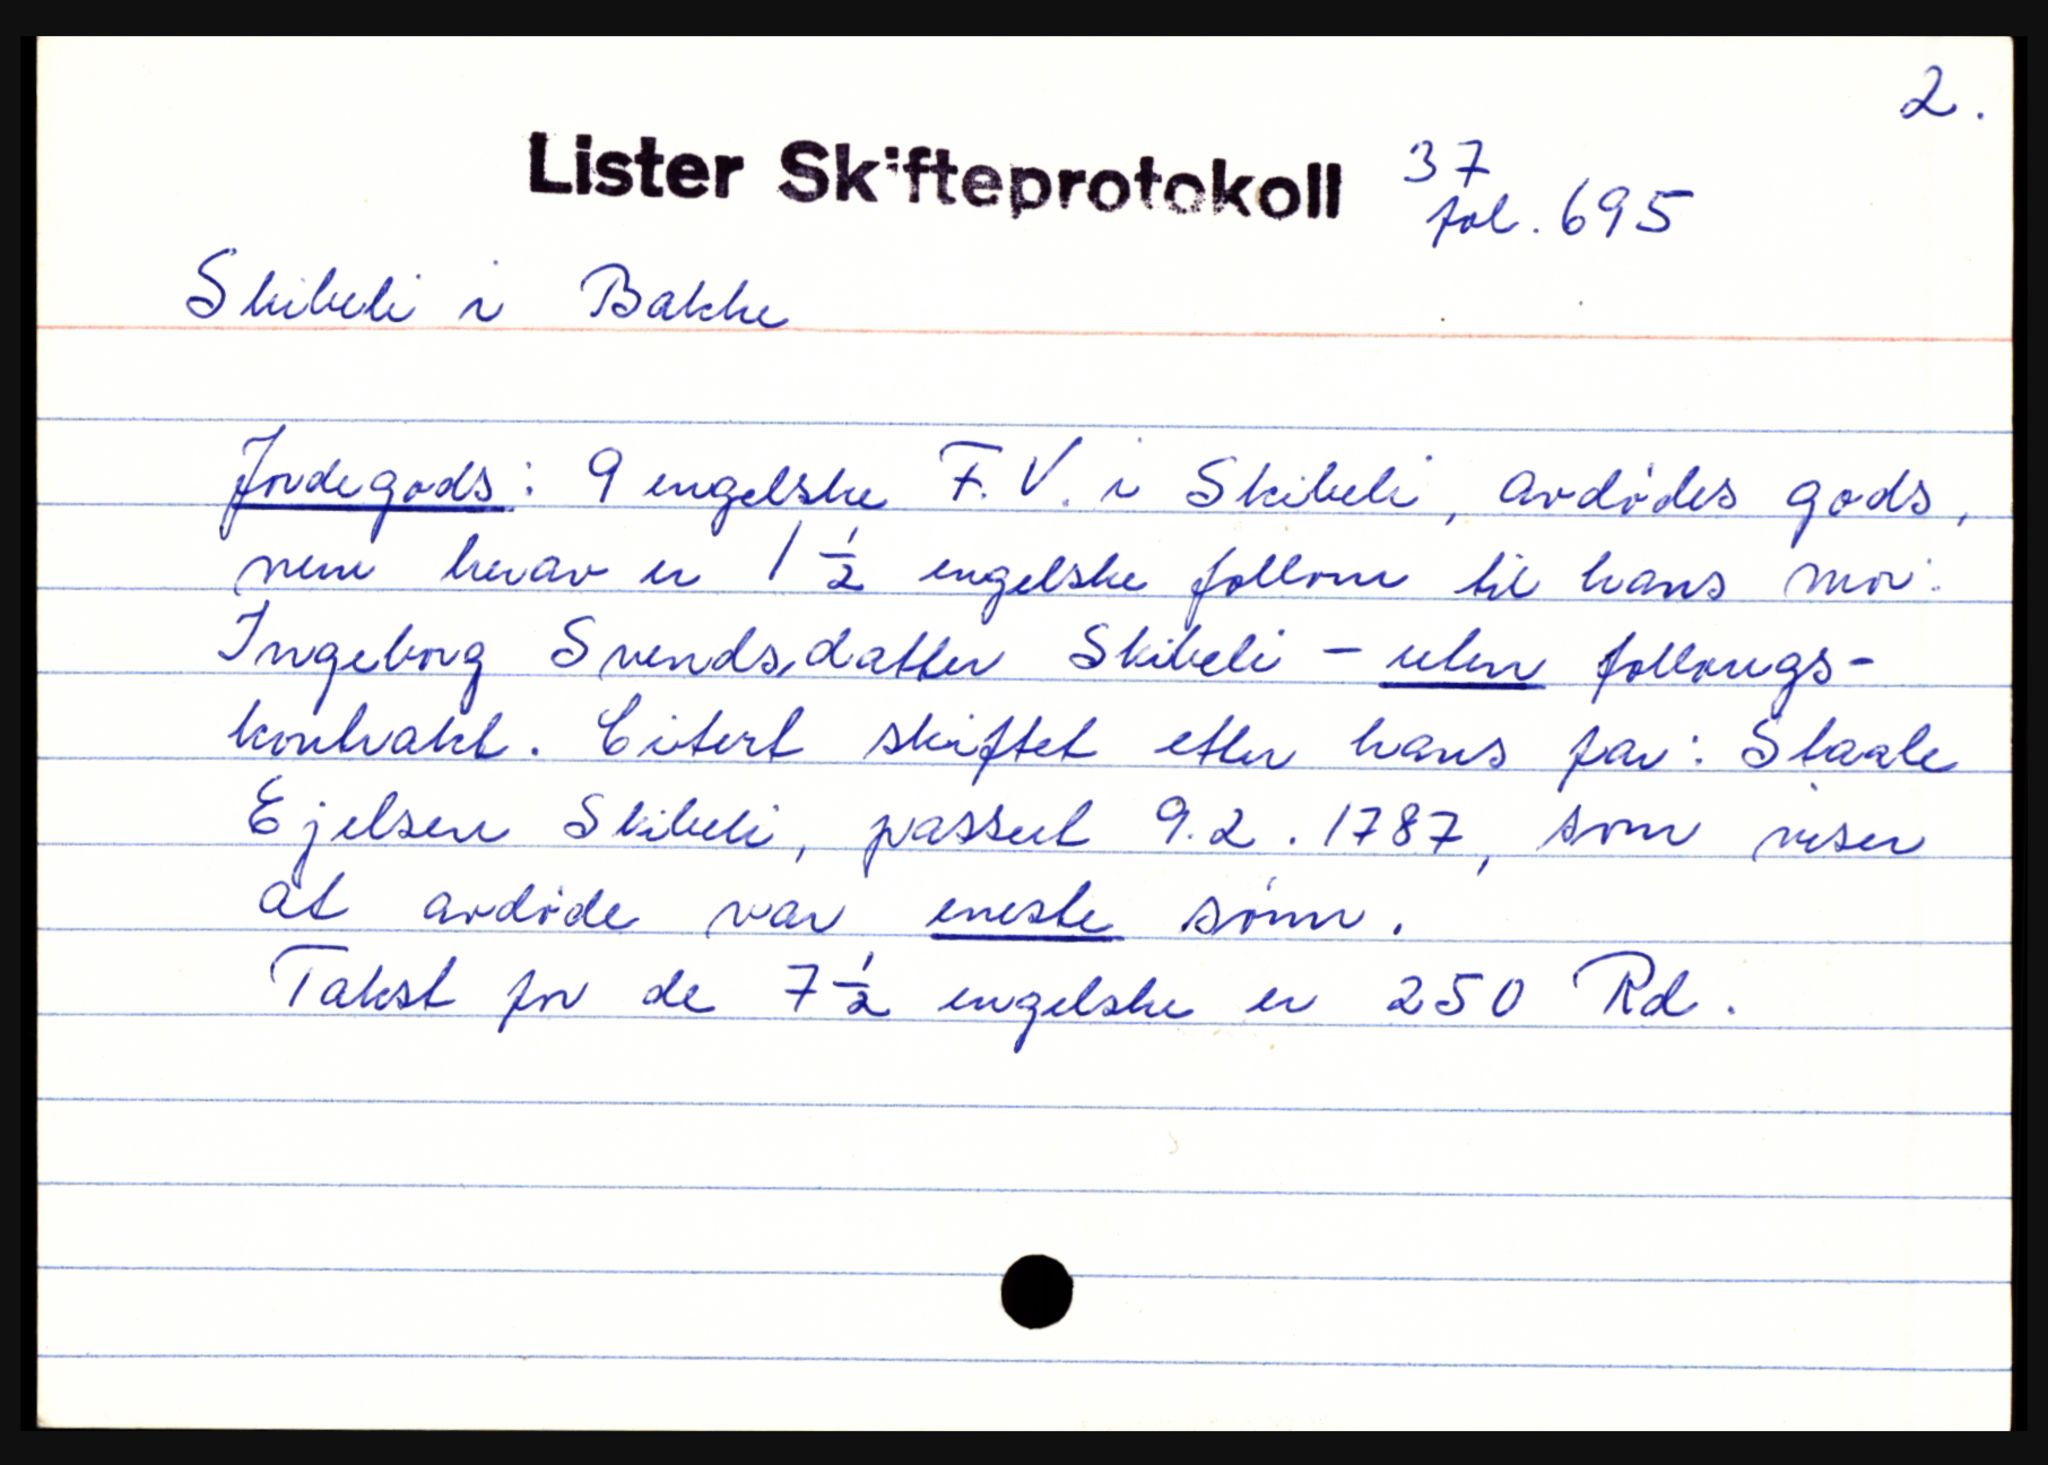 2.
Lister Skifteprotokoll 37
fol. 695
Skibeli i Bakke
Jordegods: 9 engelske F.V. i Skibeli, avdødes gods,
men herav er 1 1/2 engelske follom til hans mor:
Ingeborg Svendsdatter Skibeli - uten follougs-
kontrakt. Citert skiftet etter hans far: Staale
Ejelsen Skibeli, passert 9.2.1787, som viser
at avdøde var eneste sønn.
Takst for de 7 1/2 engelske er 250 Rd.